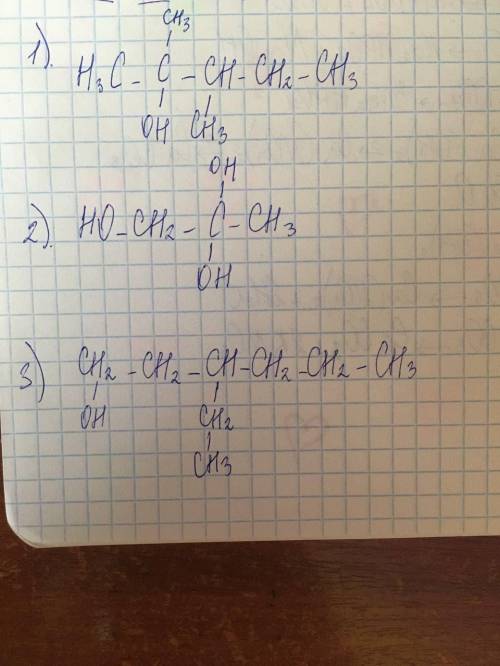 CH3
1). H3C - C - CH - CH2 - CH3
OH CH3
OH
2). HO - CH2 - C - CH3
OH
3) CH2 - CH2 - CH - CH2 - CH2 - CH3
OH CH2
CH3